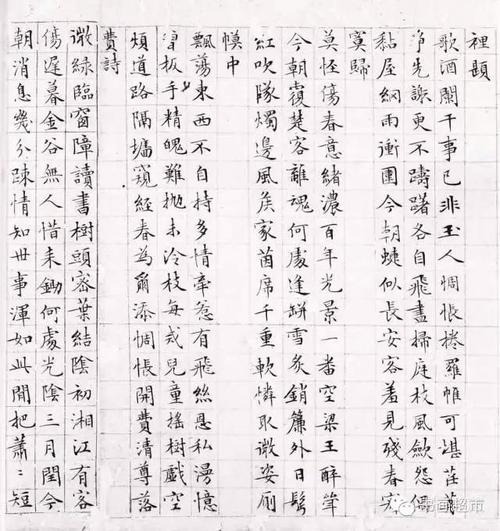 裡題
歌酒闌干事已非玉人惆悵捲羅帷可堪茌苒
先謝更不躊躇各自飛盡掃庭枝風歛怨
黏屋網雨衝團今朝蜨似長安客羞見殘春
寞歸
莫怪傷春意緒濃百年光景一番空梁王醉
今朝覆楚客離魂何處逢缾雪炙銷簾外日鬢
紅吹隊燭邊風矦家茵席千重軟憐取微姿廁
幙中
飄蕩東西不自持多情牽惹有飛絲恩私漫憶
曾板手精魄難拋未冷枝每戒兒童搖樹戲空
煩道路隔墉窺經春為爾添惆悵開費清尊落
費詩
微綠臨窗障讀書樹頭審葉結陰初湘江有客
傷遲暮金谷無人惜未鋤何處光陰三月閏今
朝消息幾分踈情知世事渾如此閒把蕭〻短
书画超市